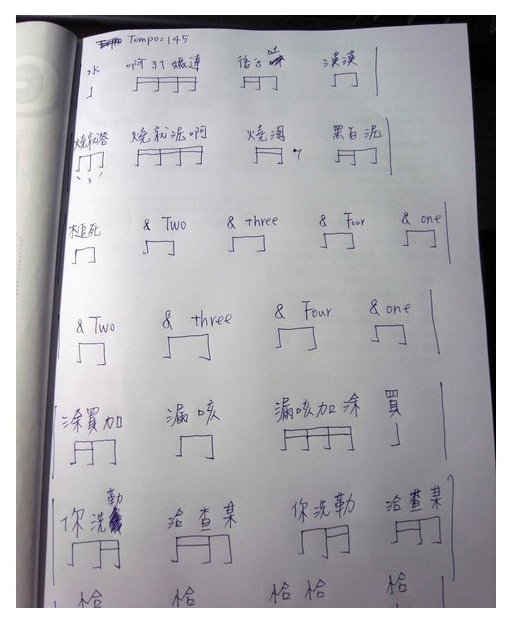 Tempo: 145
水 啊 漢漢
燒就 燒就泥啊 燒酒 黑白泥
死 & Two & three & Four & one
& Two & three & Four & one
涂買加 漏咳 漏咳加涂 買
你洗勒 洽查某 你洗勒 洽查某
恰 恰 恰恰 恰